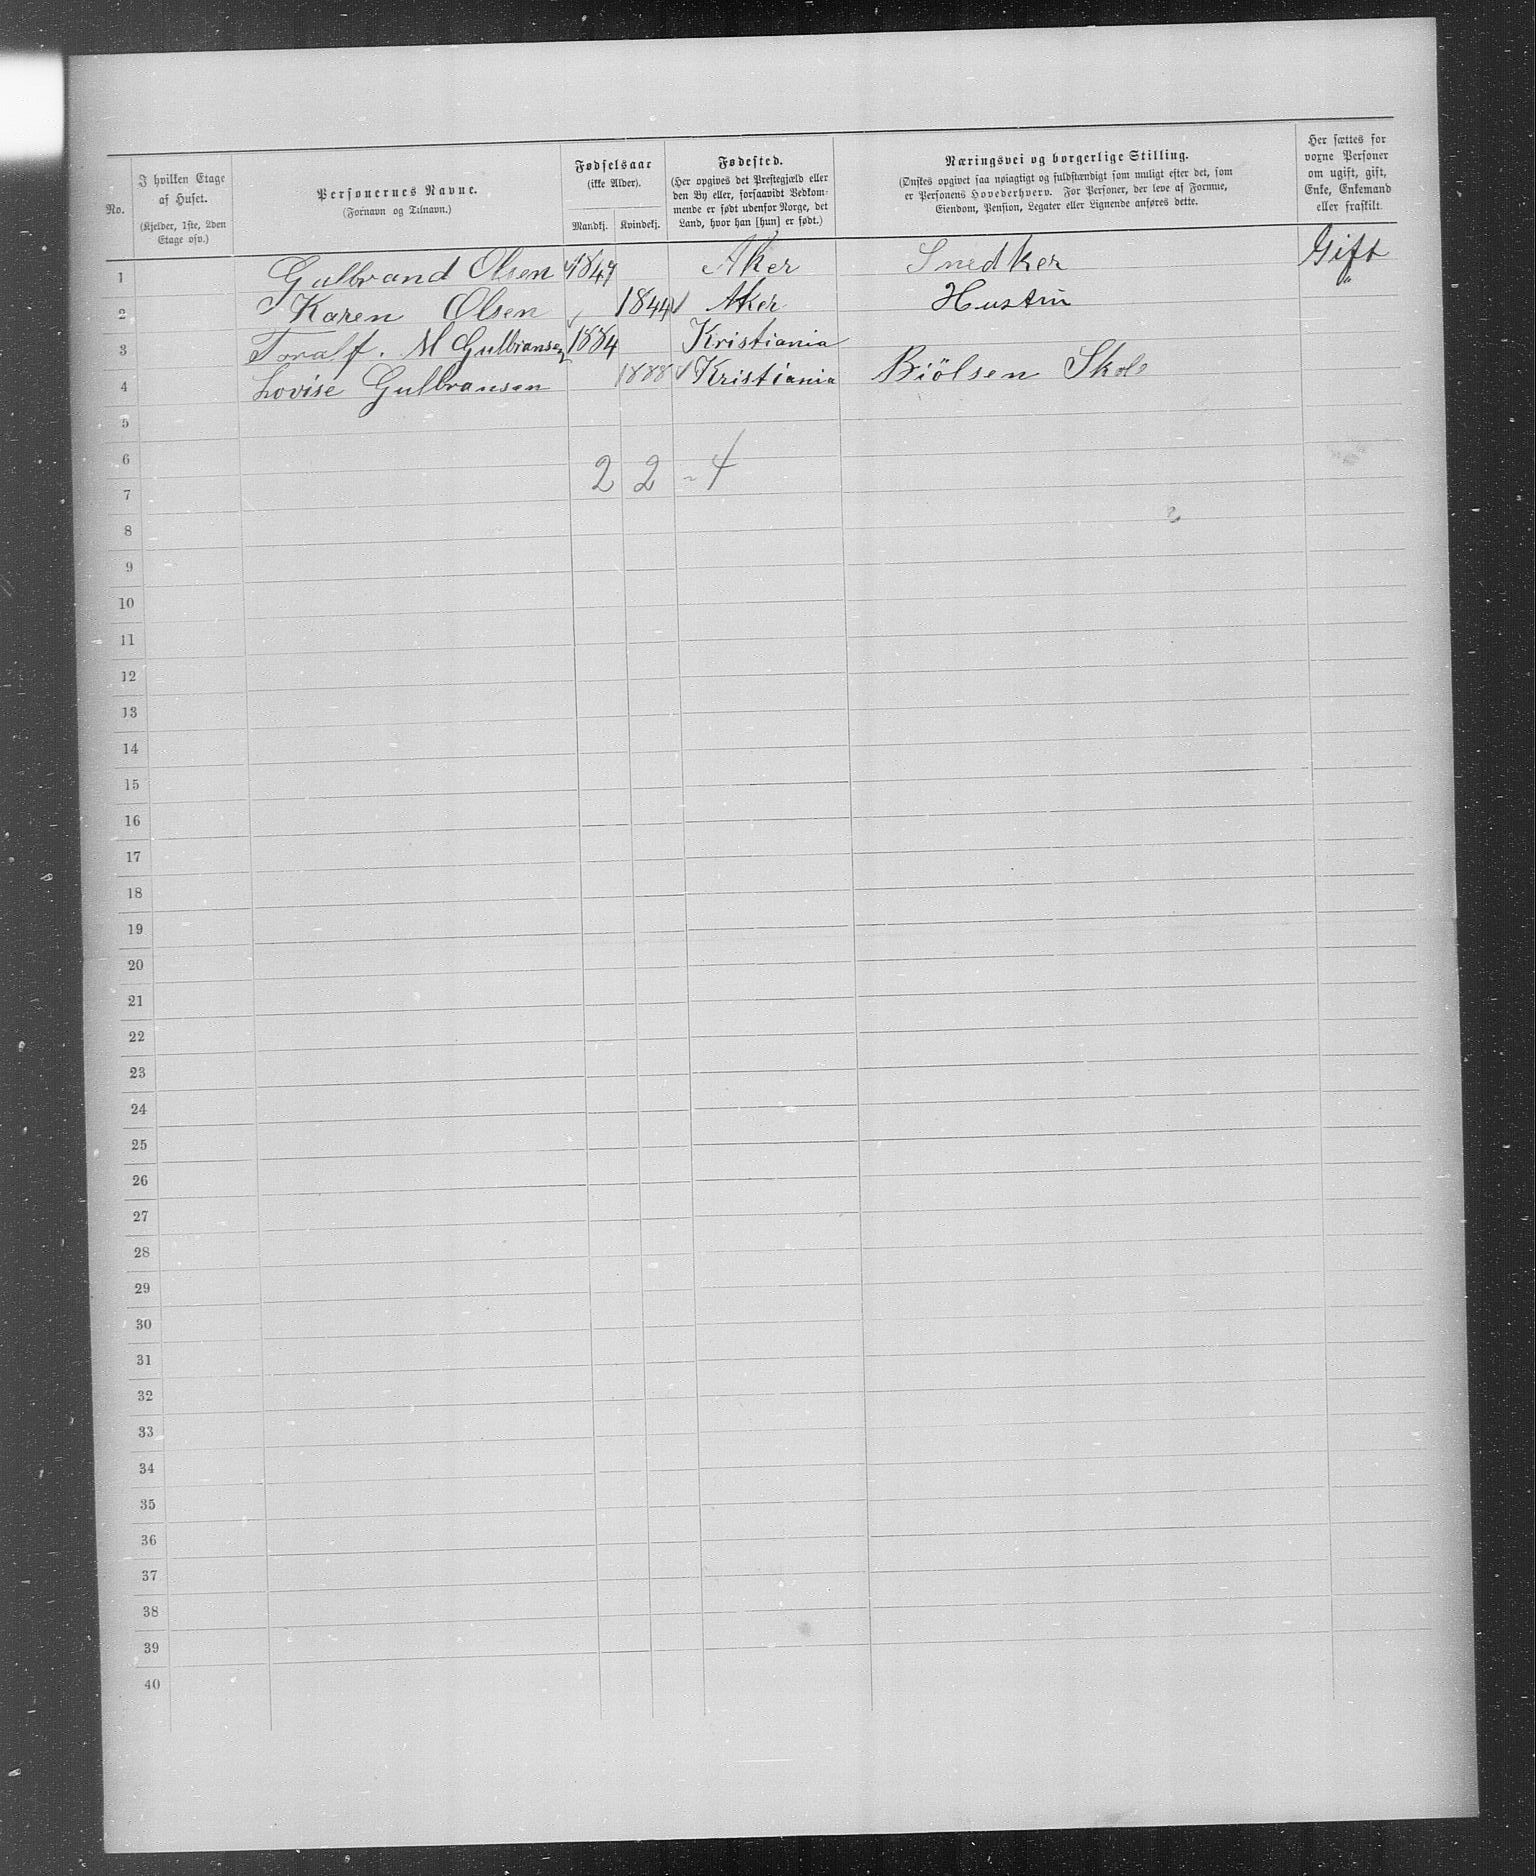 No.
I hvilken Etage af Huset.
(Kjelder, 1ste, 2den Etage osv.)
Personernes Navne.
(Fornavn og Tilnavn.)
Fødselsaar
(ikke Alder).
Mandkj. Kvindekj.
Fødested.
(Her opgives det Prestegjæld eller
den By eller, forsaavidt Vedkom-
mende er født udenfor Norge, det
Land, hvor han [hun] er født.)
Næringsvei og borgerlige Stilling.
(Ønskes opgivet saa nøiagtigt og fuldstændigt som muligt efter det, som
er Personens Hovederhverv. For Personer, der leve af Formue,
Eiendom, Pension, Legater eller Lignende anføres dette.
Her sættes for
voxne Personer
om ugift, gift,
Enke, Enkemand
eller fraskilt.
1 Gulbrand Olsen 1849 Aker Snedker Gift
2 Karen Olsen 1844 Aker Hustru "
3 Toralf. M Gulbransen 1884 Kristiania
4 Lovise Gulbransen 1888 Kristiania Biölsen Skole
5
6
2 2 - 4
7
8
9
10
11
12
13
14
15
16
17
18
19
20
21
22
23
24
25
26
27
28
29
30
31
32
33
34
35
36
37
38
39
40